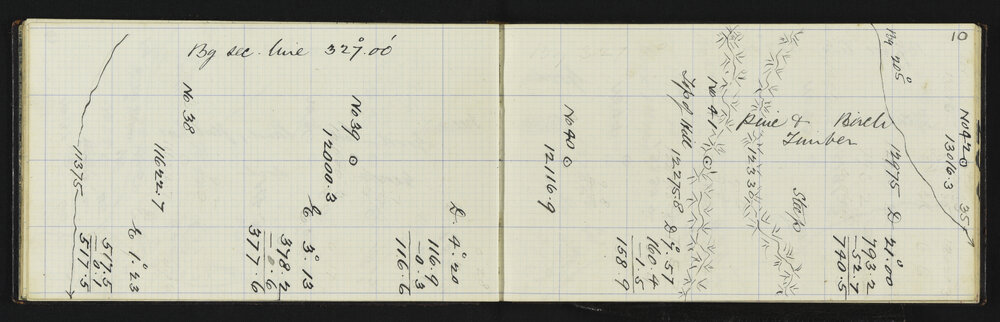 Bg sec. line 327°.00'
10
No 38
11375
11622.7
E 1°.23
517.5
0.1
517.5
No 39
12000.3
E 3°.13
378.2
0.6
377.6
D 4°.20
116.9
0.3
116.6
No 40
12116.9
Top of Hill
No 41
12275.8
D 7°.57
160.4
1.5
158.9
12338
Pine & Birch
Timber
Slope
Bg 205
12975
D 21°.00
793.2
52.7
740.5
No 42
13016.3
35